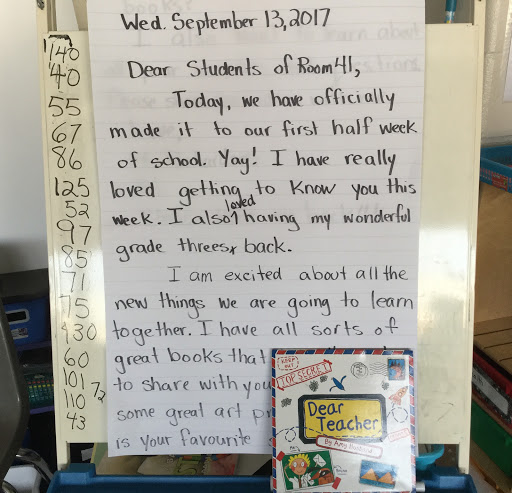 Wed. September 13, 2017
Dear Students of Room 41,
Today, we have officially
made it to our first half week
of school. Yay! I have really
loved getting to know you this
week. I also loved having my wonderful
grade threes back.
I am excited about all the
new things we are going to learn
together. I have all sorts of
great books that
to share with you
some great art
is your favourite
140
40
55
67
86
125
52
97
85
71
75
430
60
101
72
110
43
KEEP OUT
TOP SECRET
Dear
Teacher,
By Amy